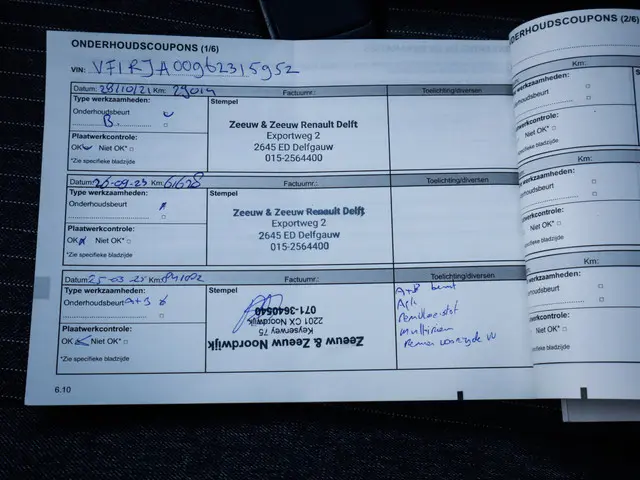 ONDERHOUDSCOUPONS (1/6)
VIN: VF1RJA00962315952
Datum: 28/10/21 Km: 29014 Factuurnr.: Toelichting/diversen
Type werkzaamheden: Stempel
Onderhoudsbeurt
B.
Plaatwerkcontrole:
OK Niet OK*
*Zie specifieke bladzijde
Zeeuw & Zeeuw Renault Delft
Exportweg 2
2645 ED Delfgauw
015-2564400
Datum: 26-09-23 Km: 61628 Factuurnr.: Toelichting/diversen
Type werkzaamheden: Stempel
Onderhoudsbeurt
Plaatwerkcontrole:
OK Niet OK*
*Zie specifieke bladzijde
Zeeuw & Zeeuw Renault Delft
Exportweg 2
2645 ED Delfgauw
015-2564400
Datum: 25-03-25 Km: Factuurnr.: Toelichting/diversen
Type werkzaamheden: Stempel
Onderhoudsbeurt A+B
Plaatwerkcontrole:
OK Niet OK*
*Zie specifieke bladzijde
Zeeuw & Zeeuw Noordwijk
Keyserweg 75
2201 CX Noordwijk
071-3640540
A+B beurt
6.10
ONDERHOUDSCOUPONS (2/6)
Km:
werkzaamheden:
Plaatwerkcontrole:
Niet OK*
specifieke bladzijde
Km:
werkzaamheden:
Niet OK*
specifieke bladzijde
Km:
werkzaamheden:
Niet OK*
specifieke bladzijde